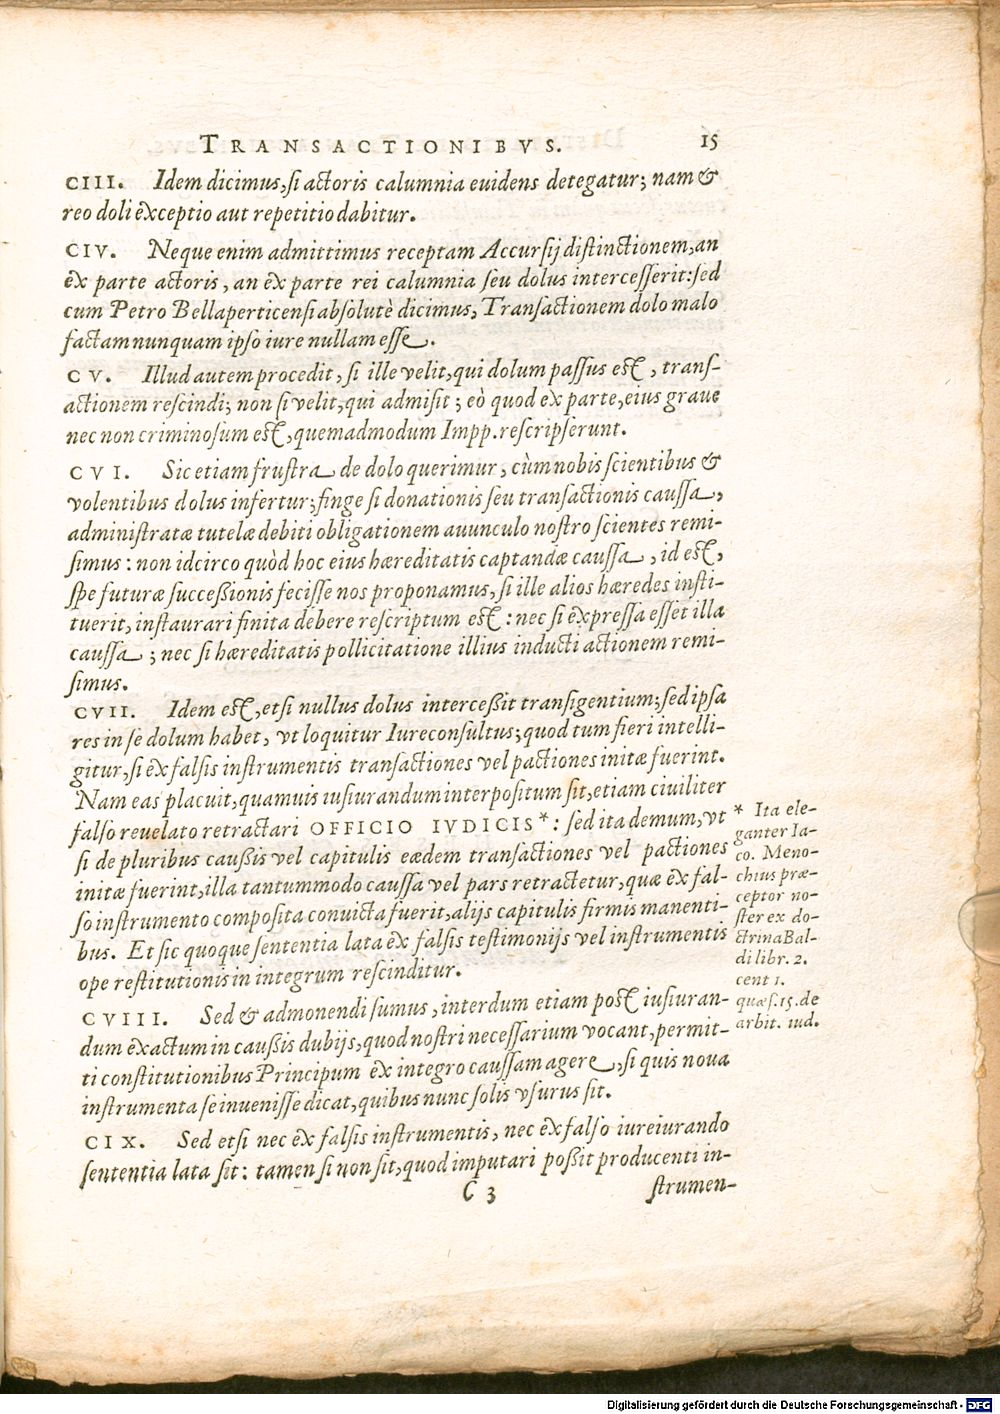 TRANSACTIONIBVS. 15
CIII. Idem dicimus, si actoris calumnia euidens detegatur; nam &
reo doli exceptio aut repetitio dabitur.
CIV. Neque enim admittimus receptam Accursij distinctionem, an
ex parte actoris, an ex parte rei calumnia seu dolus intercesserit: sed
cum Petro Bellaperticensi absolutè dicimus, Transactionem dolo malo
factam nunquam ipso iure nullam esse.
CV. Illud autem procedit, si ille velit, qui dolum passus est, trans-
actionem rescindi; non si velit, qui admisit; eò quod ex parte, eius graue
nec non criminosum est, quemadmodum Impp. rescripserunt.
CVI. Sic etiam frustra de dolo querimur, cùm nobis scientibus &
volentibus dolus infertur; finge si donationis seu transactionis caussa,
administratæ tutelæ debiti obligationem auunculo nostro scientes remi-
simus: non idcirco quòd hoc eius hæreditatis captandæ caussa, id est,
spe futuræ successionis fecisse nos proponamus, si ille alios hæredes insti-
tuerit, instaurari finita debere rescriptum est: nec si expressa esset illa
caussa; nec si hæreditatis pollicitatione illius inducti actionem remi-
simus.
CVII. Idem est, etsi nullus dolus intercessit transigentium; sed ipsa
res in se dolum habet, vt loquitur Iureconsultus; quod tum fieri intelli-
gitur, si ex falsis instrumentis transactiones vel pactiones initæ fuerint.
Nam eas placuit, quamuis iusiurandum interpositum sit, etiam ciuiliter
falso reuelato retractari OFFICIO IVDICIS*: sed ita demum, vt
si de pluribus caussis vel capitulis eædem transactiones vel pactiones
initæ fuerint, illa tantummodo caussa vel pars retractetur, quæ ex fal-
so instrumento composita conuicta fuerit, alijs capitulis firmis manenti-
bus. Et sic quoque sententia lata ex falsis testimonijs vel instrumentis
ope restitutionis in integrum rescinditur.
* Ita ele-
ganter Ia-
co. Meno-
chius præ-
ceptor no-
ster ex do-
ctrina Bal-
di libr. 2.
cent 1.
quæs. 15. de
arbit. iud.
CVIII. Sed & admonendi sumus, interdum etiam post iusiuran-
dum exactum in caussis dubijs, quod nostri necessarium vocant, permit-
ti constitutionibus Principum ex integro caussam agere, si quis noua
instrumenta se inuenisse dicat, quibus nunc solis vsurus sit.
CIX. Sed etsi nec ex falsis instrumentis, nec ex falso iureiurando
sententia lata sit: tamen si non sit, quod imputari possit producenti in-
C 3 strumen-
Digitalisierung gefördert durch die Deutsche Forschungsgemeinschaft - DFG